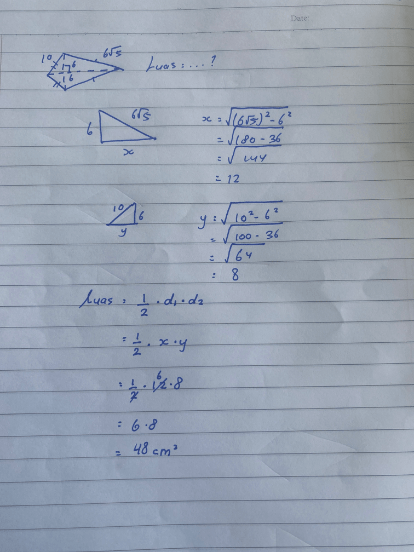 Date:
10 6√5
6
6
Luas = ... ?
6 6√5
x
x = √(6√5)² - 6²
= √180 - 36
= √144
= 12
10 6
y
y = √10² - 6²
= √100 - 36
= √64
= 8
Luas = 1/2 · d1 · d2
= 1/2 · x · y
= 1/2 · 12 · 8
6
= 6 · 8
= 48 cm²